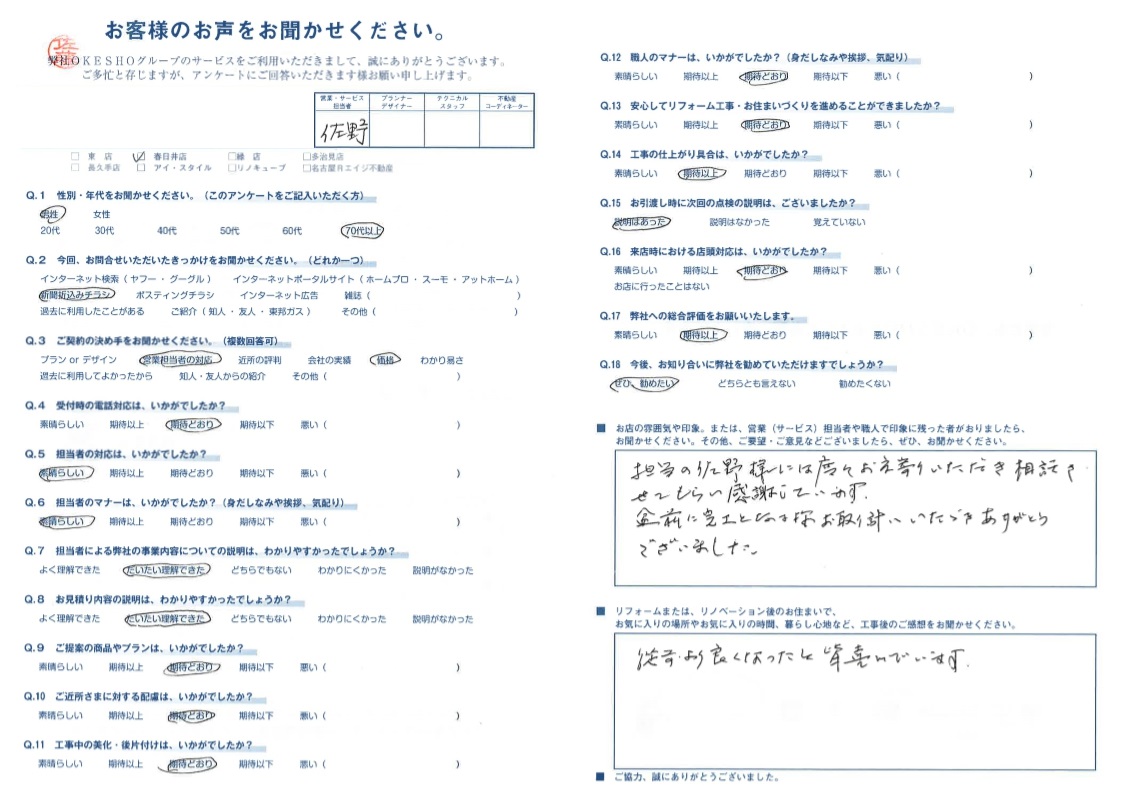 お客様のお声をお聞かせください。
弊社OKESHOグループのサービスをご利用いただきまして、誠にありがとうございます。
ご多忙と存じますが、アンケートにご回答いただきます様お願い申し上げます。
営業・サービス担当者 プランナーデザイナー テクニカルスタッフ 不動産コーディネーター
佐野
□ 東 店 ☑ 春日井店 □緑 店 □多治見店
□ 長久手店 □ アイ・スタイル □リノキューブ □名古屋北エイジ不動産
Q.1 性別・年代をお聞かせください。（このアンケートをご記入いただく方）
男性 女性
20代 30代 40代 50代 60代 70代以上
Q.2 今回、お問合せいただいたきっかけをお聞かせください。（どれか一つ）
インターネット検索（ ヤフー ・ グーグル ） インターネットポータルサイト（ ホームプロ ・ スーモ ・ アットホーム ）
新聞折込みチラシ ポスティングチラシ インターネット広告 雑誌（ ）
過去に利用したことがある ご紹介（ 知人 ・ 友人 ・ 東邦ガス ） その他（ ）
Q.3 ご契約の決め手をお聞かせください。（複数回答可）
プラン or デザイン 営業担当者の対応 近所の評判 会社の実績 価格 わかり易さ
過去に利用してよかったから 知人・友人からの紹介 その他（ ）
Q.4 受付時の電話対応は、いかがでしたか？
素晴らしい 期待以上 期待どおり 期待以下 悪い（ ）
Q.5 担当者の対応は、いかがでしたか？
素晴らしい 期待以上 期待どおり 期待以下 悪い（ ）
Q.6 担当者のマナーは、いかがでしたか？（身だしなみや挨拶、気配り）
素晴らしい 期待以上 期待どおり 期待以下 悪い（ ）
Q.7 担当者による弊社の事業内容についての説明は、わかりやすかったでしょうか？
よく理解できた だいたい理解できた どちらでもない わかりにくかった 説明がなかった
Q.8 お見積り内容の説明は、わかりやすかったでしょうか？
よく理解できた だいたい理解できた どちらでもない わかりにくかった 説明がなかった
Q.9 ご提案の商品やプランは、いかがでしたか？
素晴らしい 期待以上 期待どおり 期待以下 悪い（ ）
Q.10 ご近所さまに対する配慮は、いかがでしたか？
素晴らしい 期待以上 期待どおり 期待以下 悪い（ ）
Q.11 工事中の美化・後片付けは、いかがでしたか？
素晴らしい 期待以上 期待どおり 期待以下 悪い（ ）
Q.12 職人のマナーは、いかがでしたか？（身だしなみや挨拶、気配り）
素晴らしい 期待以上 期待どおり 期待以下 悪い（ ）
Q.13 安心してリフォーム工事・お住まいづくりを進めることができましたか？
素晴らしい 期待以上 期待どおり 期待以下 悪い（ ）
Q.14 工事の仕上がり具合は、いかがでしたか？
素晴らしい 期待以上 期待どおり 期待以下 悪い（ ）
Q.15 お引渡し時に次回の点検の説明は、ございましたか？
説明はあった 説明はなかった 覚えていない
Q.16 来店時における店頭対応は、いかがでしたか？
素晴らしい 期待以上 期待どおり 期待以下 悪い（ ）
お店に行ったことはない
Q.17 弊社への総合評価をお願いいたします。
素晴らしい 期待以上 期待どおり 期待以下 悪い（ ）
Q.18 今後、お知り合いに弊社を勧めていただけますでしょうか？
ぜひ、勧めたい どちらとも言えない 勧めたくない
■ お店の雰囲気や印象。または、営業（サービス）担当者や職人で印象に残った者がおりましたら、
お聞かせください。その他、ご要望・ご意見などございましたら、ぜひ、お聞かせください。
担当の佐野様には度々お立寄りいただき相談さ
せてもらい感謝しています。
盆前に完工となる様お取計いいただきありがとう
ございました。
■ リフォームまたは、リノベーション後のお住まいで、
お気に入りの場所やお気に入りの時間、暮らし心地など、工事後のご感想をお聞かせください。
従前より良くなったと皆喜んでいます。
■ ご協力、誠にありがとうございました。